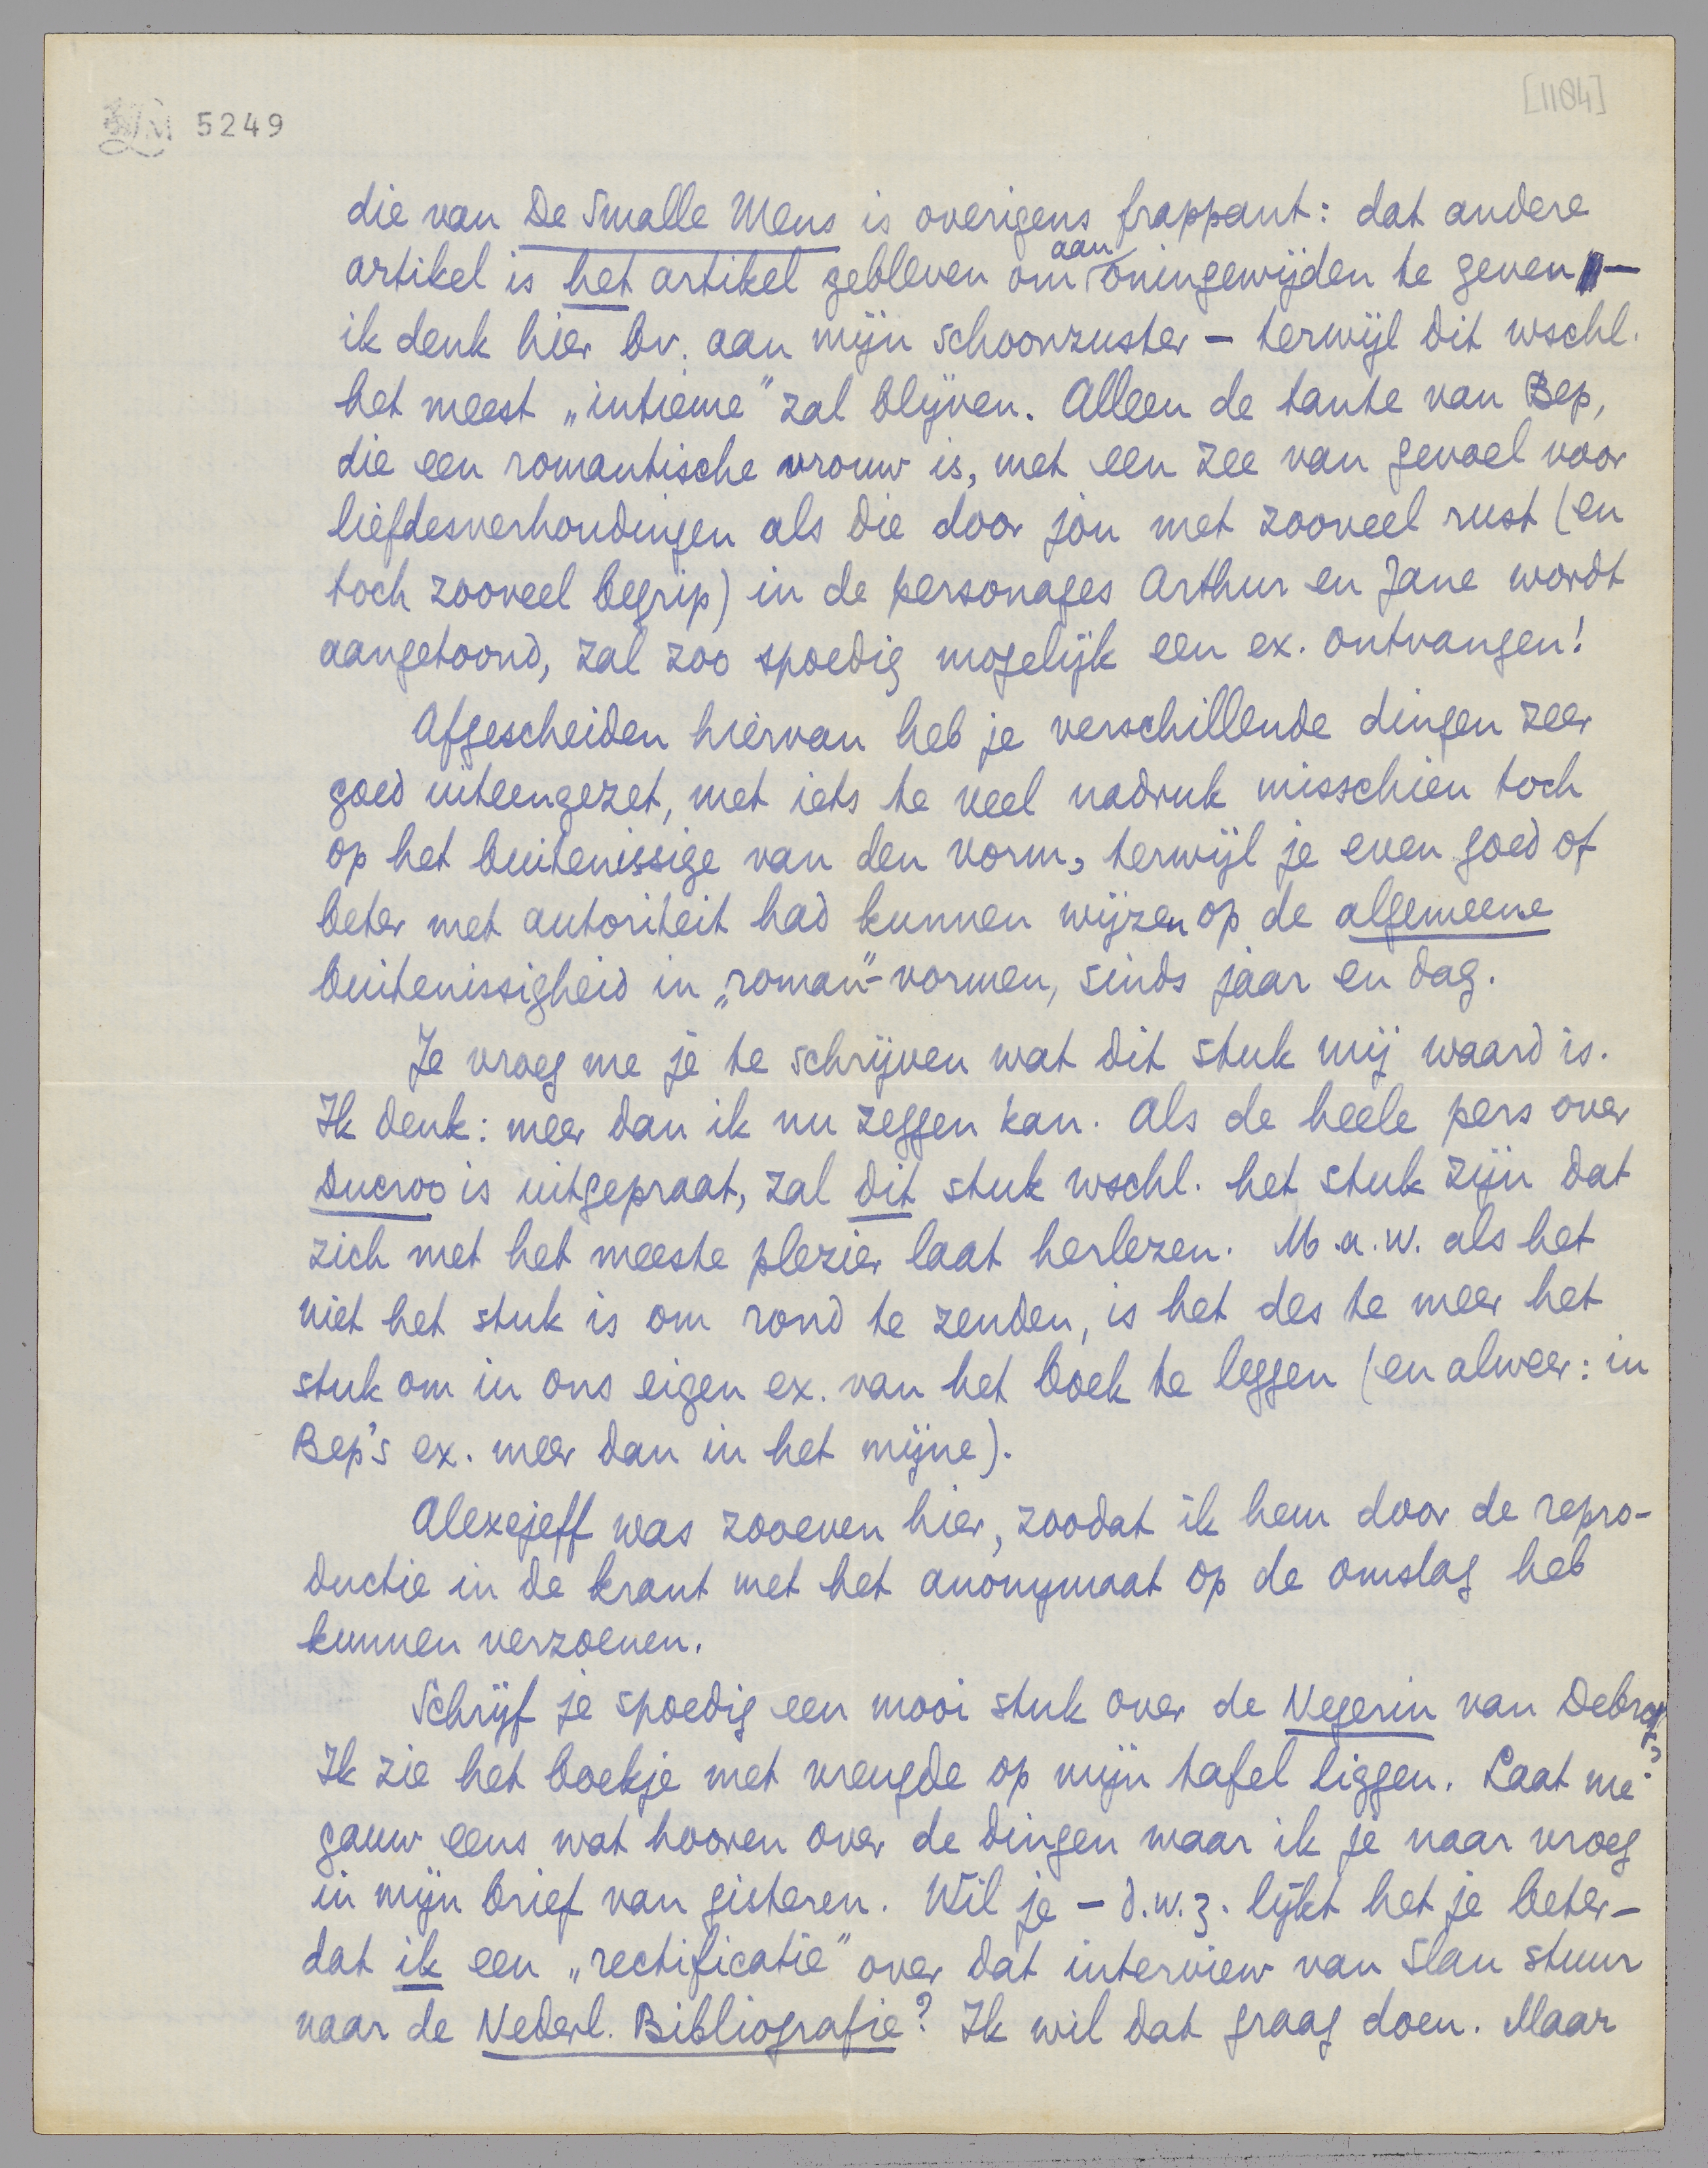 5249
[1184]
die van De Smalle Mens is overigens frappant: dat andere
artikel is het artikel gebleven om aan oningewijden te geven —
ik denk hier bv. aan mijn schoonzuster — terwijl dit wschl.
het meest „intieme” zal blijven. Alleen de tante van Bep,
die een romantische vrouw is, met een zee van gevoel voor
liefdesverhoudingen als die door jòu met zooveel rust (en
toch zooveel begrip) in de personages Arthur en Jane wordt
aangetoond, zal zoo spoedig mogelijk een ex. ontvangen!
Afgescheiden hiervan heb je verschillende dingen zeer
goed uiteengezet, met iets te veel nadruk misschien toch
op het buitenissige van den vorm, terwijl je even goed of
beter met autoriteit had kunnen wijzen op de algemeene
buitenissigheid in „roman”-vormen, sinds jaar en dag.
Je vroeg me je te schrijven wat dit stuk mij waard is.
Ik denk: meer dan ik nu zeggen kan. Als de heele pers over
Ducroo is uitgepraat, zal dit stuk wschl. het stuk zijn dat
zich met het meeste plezier laat herlezen. M.a.w. als het
niet het stuk is om rond te zenden, is het des te meer het
stuk om in ons eigen ex. van het boek te leggen (en alweer: in
Bep's ex. meer dan in het mijne).
Alexejeff was zooeven hier, zoodat ik hem door de repro-
ductie in de krant met het anonymaat op de omslag heb
kunnen verzoenen.
Schrijf je spoedig een mooi stuk over de Negerin van Debrot?
Ik zie het boekje met vreugde op mijn tafel liggen. Laat me
gauw eens wat hooren over de dingen waar ik je naar vroeg
in mijn brief van gisteren. Wil je — d.w.z. lijkt het je beter —
dat ik een „rectificatie” over dat interview van Slau stuur
naar de Nederl. Bibliografie? Ik wil dat graag doen. Maar